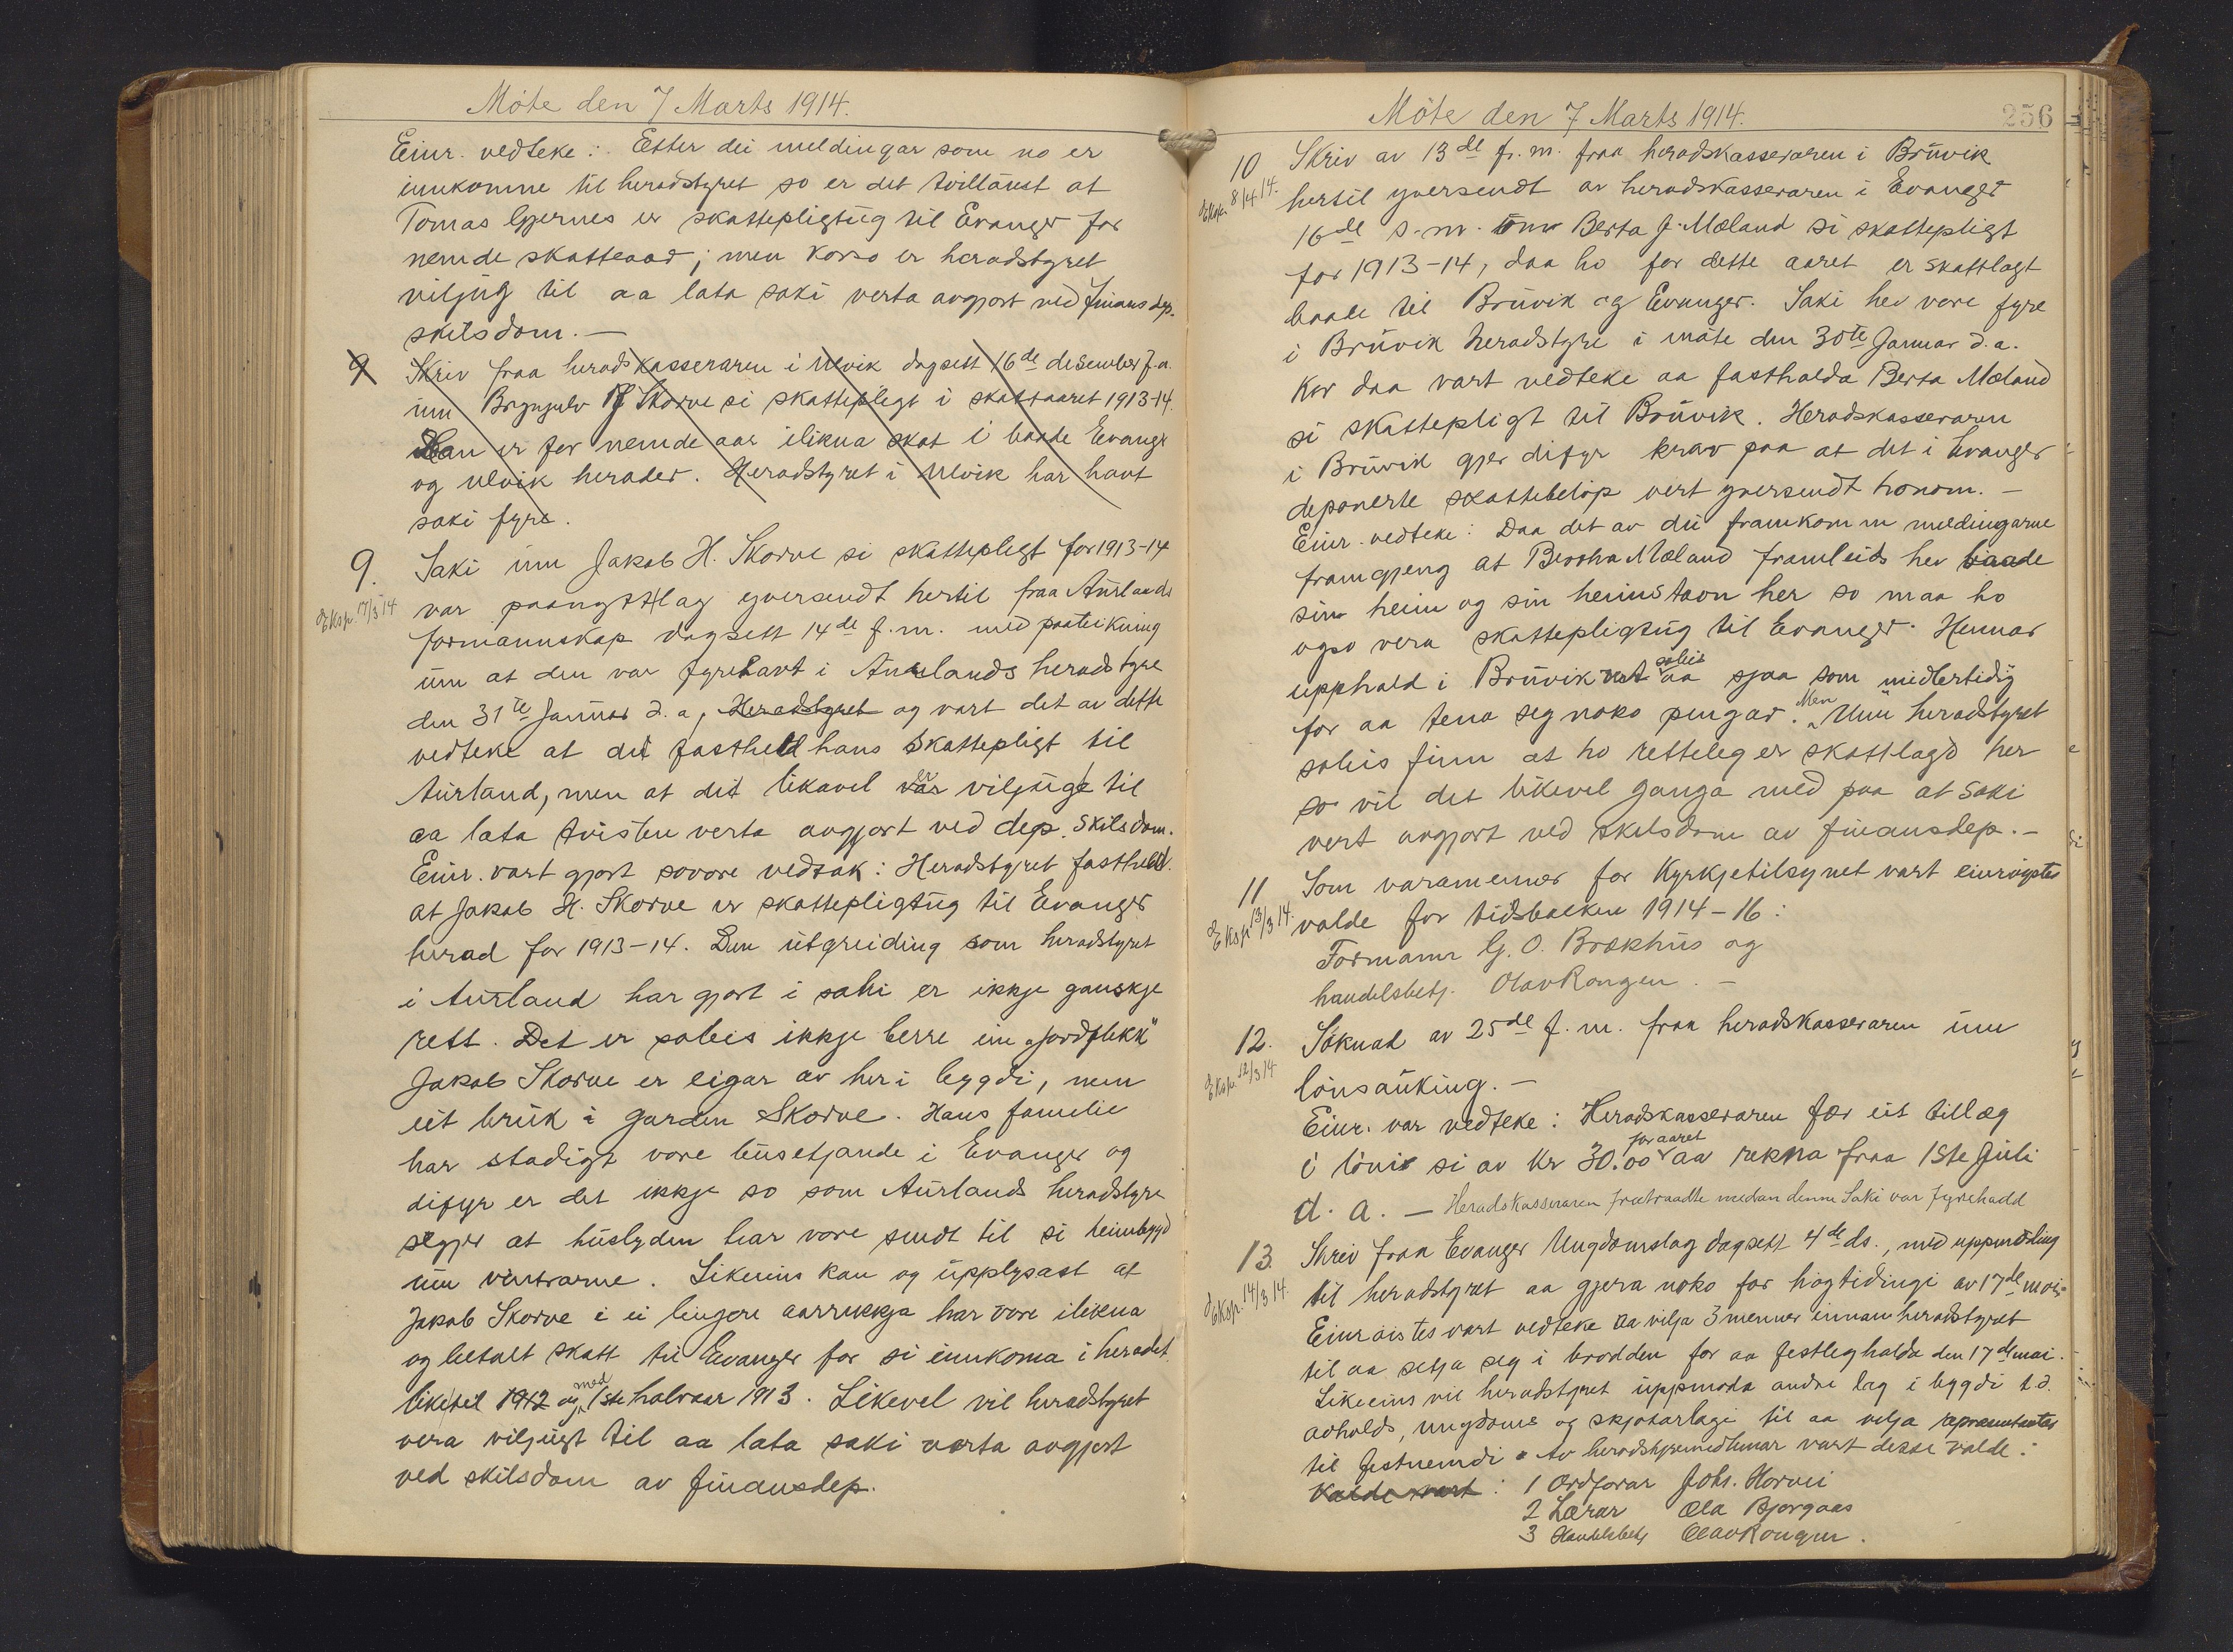 Møte den 7 Marts 1914.
Einr. vedteke: Etter dei meldingar som no er
innkomne til heradstyret so er det tvillaust at
Tomas Gjernes er skattepligtug til Evanger for
nemde skatteaar; men korso er heradstyret
viljug til aa lata saki verta avgjort ved finansdep.
skilsdom. —
9 Skriv fraa heradskasseraren i Ulvik dagsett 16de desember f.a.
um Brynjulv Skorve si skattepligt i skattaaret 1913-14.
Han er for nemde aar ilikna skat i baade Evanger
og Ulvik herader. Heradstyret i Ulvik har havt
saki fyre.
9. Saki um Jakob H. Skorve si skattepligt for 1913-14
Eksp. 17/3 14
var paanytt lag yversendt hertil fraa Aurlands
formannskap dagsett 14de f.m. med paateikning
um at den var fyrehavt i Aurlands heradstyre
den 31te Januar d.a, Heradstyret og vart det av dette
vedteke at det fastheld hans skattepligt til
Aurland, men at det likavel var er viljuge til
aa lata tvisten verta avgjort ved dep. skilsdom.
Einr. vart gjort sovore vedtak: Heradstyret fastheld
at Jakob H. Skorve er skattepligtug til Evanger
herad for 1913-14. Den utgreiding som heradstyret
i Aurland har gjort i saki er ikkje ganskje
rett. Det er soleis ikkje berre ein „jordflekk"
Jakob Skorve er eigar av her i bygdi, men
eit bruk i garden Skorve. Hans familie
har stadigt vore busetjande i Evanger og
difyr er det ikkje so som Aurlands heradstyre
segjer at huslyden har vore sendt til si heimbygd
um vintrarne. Likeeins kan og upplysast at
Jakob Skorve i ei lengere aarrekkja har vore ilikna
og betalt skatt til Evanger for si innkoma i heradet
liketil 1912 og med 1ste halvaar 1913. Likevel vil heradstyret
vera viljugt til aa lata saki verta avgjort
ved skilsdom av finansdep.
Møte den 7 Marts 1914.
256
10 Skriv av 13de f.m. fraa heradskasseraren i Bruvik
Eksp. 8/4 14.
hertil yversendt av heradskasseraren i Evanger
16de s.m. um Berta J. Mæland si skattepligt
for 1913-14, daa ho for dette aaret er skattlagt
baade til Bruvik og Evanger. Saki hev vore fyre
i Bruvik heradstyre i møte den 30te Januar d.a.
kor daa vart vedteke aa fasthalda Berta Mæland
si skattepligt til Bruvik. Heradskasseraren
i Bruvik gjer difyr krav paa at det i Evanger
deponerte skattebeløp vert yversendt honom. —
Einr. vedteke: Daa det av dei framkomm meldingarne
framgjeng at Bertha Mæland framleids hev baade
sin heim og sin heimstavn her so maa ho
ogso vera skattepligtug til Evanger. Hennar
upphald i Bruvik soleis aa sjaa som midlertidig
for aa tena seg noko pengar. Men Um heradstyret
soleis finn at ho retteleg er skattlagd her
so vil det likevel ganga med paa at saki
vert avgjort ved skilsdom av finansdep. —
11 Som varamenner for Kyrkjetilsynet vart einrøystes
Eksp. 13/3 14.
valde for tidsbolken 1914-16:
Formann G. O. Brækhus og
handelsbetj. Olav Rongen. —
12. Søknad av 25de f.m. fraa heradskasseraren um
Eksp. 12/3 14
lønsauking. —
Einr. var vedteke: Heradskasseraren fær eit tillæg
i løni si av kr 30.00 for aaret aa rekna fraa 1ste Juli
d. a. — Heradskasseraren fraatraadte medan denne Saki var fyrehadd
13. Skriv fraa Evanger Ungdomslag dagsett 4de ds., med uppmoding
Eksp. 14/3 14.
til heradstyret aa gjera noko for høgtidingi av 17de mai.
Einrøistes vart vedteke aa velja 3 menner innan heradstyret
til aa setja seg i brodden for aa festleg halda den 17de mai.
Likeeins vil heradstyret uppmoda andre lag i bygdi t.d.
avholds, ungdoms og skjotarlagi til aa velja representantar
til festnemdi. Av heradstyremedlemar vart desse valde:
Valde vart: 1 Ordførar Johs. Horvei
2 Lærar Ola Bjørgaas
3 Handelsbetj Olav Rongen.